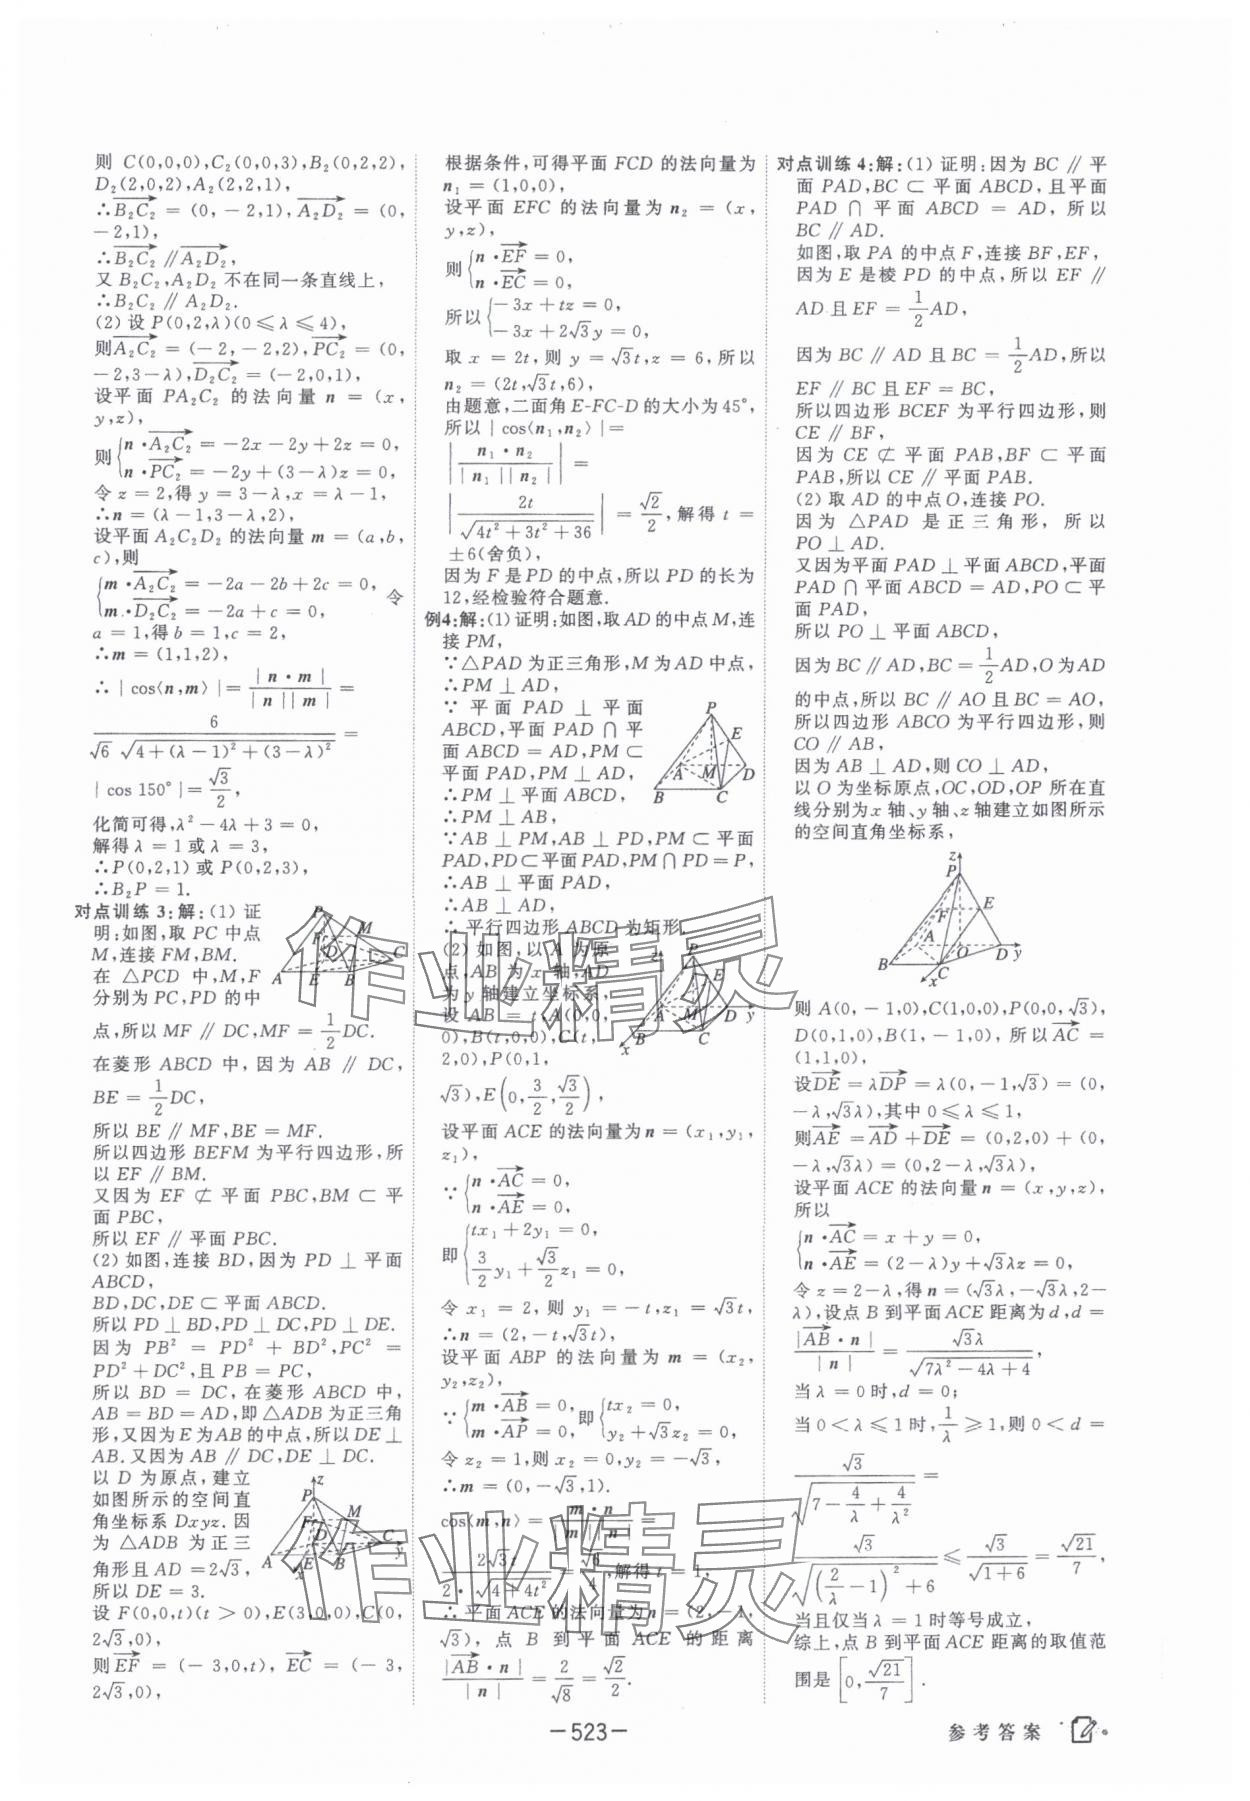 则 C(0,0,0),C₂(0,0,3),B₂(0,2,2),
D₂(2,0,2),A₂(2,2,1),
∴B₂C₂→ = (0,-2,1),A₂D₂→ = (0,
-2,1),
∴B₂C₂→ // A₂D₂→,
又 B₂C₂,A₂D₂ 不在同一条直线上,
∴B₂C₂ // A₂D₂.
(2) 设 P(0,2,λ)(0 ≤ λ ≤ 4),
则A₂C₂→ = (-2,-2,2),PC₂→ = (0,
-2,3-λ),D₂C₂→ = (-2,0,1),
设平面 PA₂C₂ 的法向量 n = (x,
y,z),
则{n·A₂C₂→ = -2x-2y+2z = 0,
n·PC₂→ = -2y+(3-λ)z = 0,
令 z = 2,得 y = 3-λ,x = λ-1,
∴n = (λ-1,3-λ,2),
设平面 A₂C₂D₂ 的法向量 m = (a,b,
c),则
{m·A₂C₂→ = -2a-2b+2c = 0,
m·D₂C₂→ = -2a+c = 0, 令
a = 1,得 b = 1,c = 2,
∴m = (1,1,2),
∴|cos⟨n,m⟩| = |n·m| / |n||m| =
6 / √6 √4+(λ-1)²+(3-λ)² =
|cos 150°| = √3/2,
化简可得,λ²-4λ+3 = 0,
解得 λ = 1或 λ = 3,
∴P(0,2,1) 或 P(0,2,3),
∴B₂P = 1.
对点训练 3:解:(1) 证
明:如图,取 PC 中点
M,连接 FM,BM.
在 △PCD 中,M,F
分别为 PC,PD 的中
P M F D C A E B
点,所以 MF // DC,MF = 1/2 DC.
在菱形 ABCD 中,因为 AB // DC,
BE = 1/2 DC,
所以 BE // MF,BE = MF.
所以四边形 BEFM 为平行四边形,所
以 EF // BM.
又因为 EF ⊄ 平面 PBC,BM ⊂ 平
面 PBC,
所以 EF // 平面 PBC.
(2) 如图,连接 BD,因为 PD ⊥ 平面
ABCD,
BD,DC,DE ⊂ 平面 ABCD.
所以 PD ⊥ BD,PD ⊥ DC,PD ⊥ DE.
因为 PB² = PD² + BD²,PC² =
PD² + DC²,且 PB = PC,
所以 BD = DC,在菱形 ABCD 中,
AB = BD = AD,即 △ADB 为正三角
形,又因为 E 为 AB 的中点,所以 DE ⊥
AB.又因为 AB // DC,DE ⊥ DC.
以 D 为原点,建立
如图所示的空间直
角坐标系 Dxyz.因
为 △ADB 为正三
z P M F D C A E B y x
角形且 AD = 2√3,
所以 DE = 3.
设 F(0,0,t)(t > 0),E(3,0,0),C(0,
2√3,0),
则EF→ = (-3,0,t),EC→ = (-3,
2√3,0),
根据条件,可得平面 FCD 的法向量为
n₁ = (1,0,0),
设平面 EFC 的法向量为 n₂ = (x,
y,z),
则{n·EF→ = 0,
n·EC→ = 0,
所以{-3x+tz = 0,
-3x+2√3y = 0,
取 x = 2t,则 y = √3t,z = 6,所以
n₂ = (2t,√3t,6),
由题意,二面角 E-FC-D 的大小为 45°,
所以|cos⟨n₁,n₂⟩| =
|n₁·n₂ / |n₁||n₂|| =
|2t / √4t²+3t²+36| = √2/2,解得 t =
±6(舍负),
因为 F 是 PD 的中点,所以 PD 的长为
12,经检验符合题意.
例4:解:(1) 证明:如图,取 AD 的中点 M,连
接 PM,
∵△PAD 为正三角形,M 为 AD 中点,
∴PM ⊥ AD,
∵ 平面 PAD ⊥ 平面
ABCD,平面 PAD ∩ 平
面 ABCD = AD,PM ⊂
平面 PAD,PM ⊥ AD,
∴PM ⊥ 平面 ABCD,
P E A M D B C
∴PM ⊥ AB,
∵AB ⊥ PM,AB ⊥ PD,PM ⊂ 平面
PAD,PD⊂平面PAD,PM∩PD = P,
∴AB ⊥ 平面 PAD,
∴AB ⊥ AD,
∴ 平行四边形 ABCD 为矩形.
(2) 如图,以 A 为原
点,AB 为 x 轴,AD
为 y 轴建立坐标系,
设 AB = t,A(0,0,
0),B(t,0,0),C(t,
2,0),P(0,1,
z P E A M D y B C x
√3),E(0,3/2,√3/2),
设平面 ACE 的法向量为 n = (x₁,y₁,
z₁),
∵{n·AC→ = 0,
n·AE→ = 0,
即{tx₁+2y₁ = 0,
3/2 y₁+√3/2 z₁ = 0,
令 x₁ = 2,则 y₁ = -t,z₁ = √3t,
∴n = (2,-t,√3t),
设平面 ABP 的法向量为 m = (x₂,
y₂,z₂),
∵{m·AB→ = 0,
m·AP→ = 0, 即{tx₂ = 0,
y₂+√3z₂ = 0,
令 z₂ = 1,则 x₂ = 0,y₂ = -√3,
∴m = (0,-√3,1).
cos⟨m,n⟩ = m·n / |m||n| =
2√3t / 2·√4+4t² = √6/4,解得 t = 1,
∴ 平面 ACE 的法向量为 n = (2,-1,
√3),点 B 到平面 ACE 的距离
|AB→·n| / |n| = 2/√8 = √2/2.
对点训练 4:解:(1) 证明:因为 BC // 平
面 PAD,BC ⊂ 平面 ABCD,且平面
PAD ∩ 平面 ABCD = AD,所以
BC // AD.
如图,取 PA 的中点 F,连接 BF,EF,
因为 E 是棱 PD 的中点,所以 EF //
AD 且 EF = 1/2 AD,
因为 BC // AD 且 BC = 1/2 AD,所以
EF // BC 且 EF = BC,
所以四边形 BCEF 为平行四边形,则
CE // BF,
因为 CE ⊄ 平面 PAB,BF ⊂ 平面
PAB,所以 CE // 平面 PAB.
(2) 取 AD 的中点 O,连接 PO.
因为 △PAD 是正三角形,所以
PO ⊥ AD.
又因为平面 PAD ⊥ 平面 ABCD,平面
PAD ∩ 平面 ABCD = AD,PO ⊂ 平
面 PAD,
所以 PO ⊥ 平面 ABCD,
因为 BC // AD,BC = 1/2 AD,O 为 AD
的中点,所以 BC // AO 且 BC = AO,
所以四边形 ABCO 为平行四边形,则
CO // AB,
因为 AB ⊥ AD,则 CO ⊥ AD,
以 O 为坐标原点,OC,OD,OP 所在直
线分别为 x 轴、y 轴、z 轴建立如图所示
的空间直角坐标系,
z P F E A O D y B C x
则 A(0,-1,0),C(1,0,0),P(0,0,√3),
D(0,1,0),B(1,-1,0),所以AC→ =
(1,1,0),
设DE→ = λDP→ = λ(0,-1,√3) = (0,
-λ,√3λ),其中 0 ≤ λ ≤ 1,
则AE→ = AD→ + DE→ = (0,2,0) + (0,
-λ,√3λ) = (0,2-λ,√3λ),
设平面 ACE 的法向量 n = (x,y,z),
所以
{n·AC→ = x+y = 0,
n·AE→ = (2-λ)y+√3λz = 0,
令 z = 2-λ,得 n = (√3λ,-√3λ,2-
λ),设点 B 到平面 ACE 距离为 d,d =
|AB→·n| / |n| = √3λ / √7λ²-4λ+4,
当 λ = 0 时,d = 0;
当 0 < λ ≤ 1 时,1/λ ≥ 1,则 0 < d =
√3 / √7-4/λ+4/λ² =
√3 / √(2/λ-1)²+6 ≤ √3/√1+6 = √21/7,
当且仅当 λ = 1 时等号成立,
综上,点 B 到平面 ACE 距离的取值范
围是[0,√21/7].
作业精灵
作业精灵
-523-
参考答案